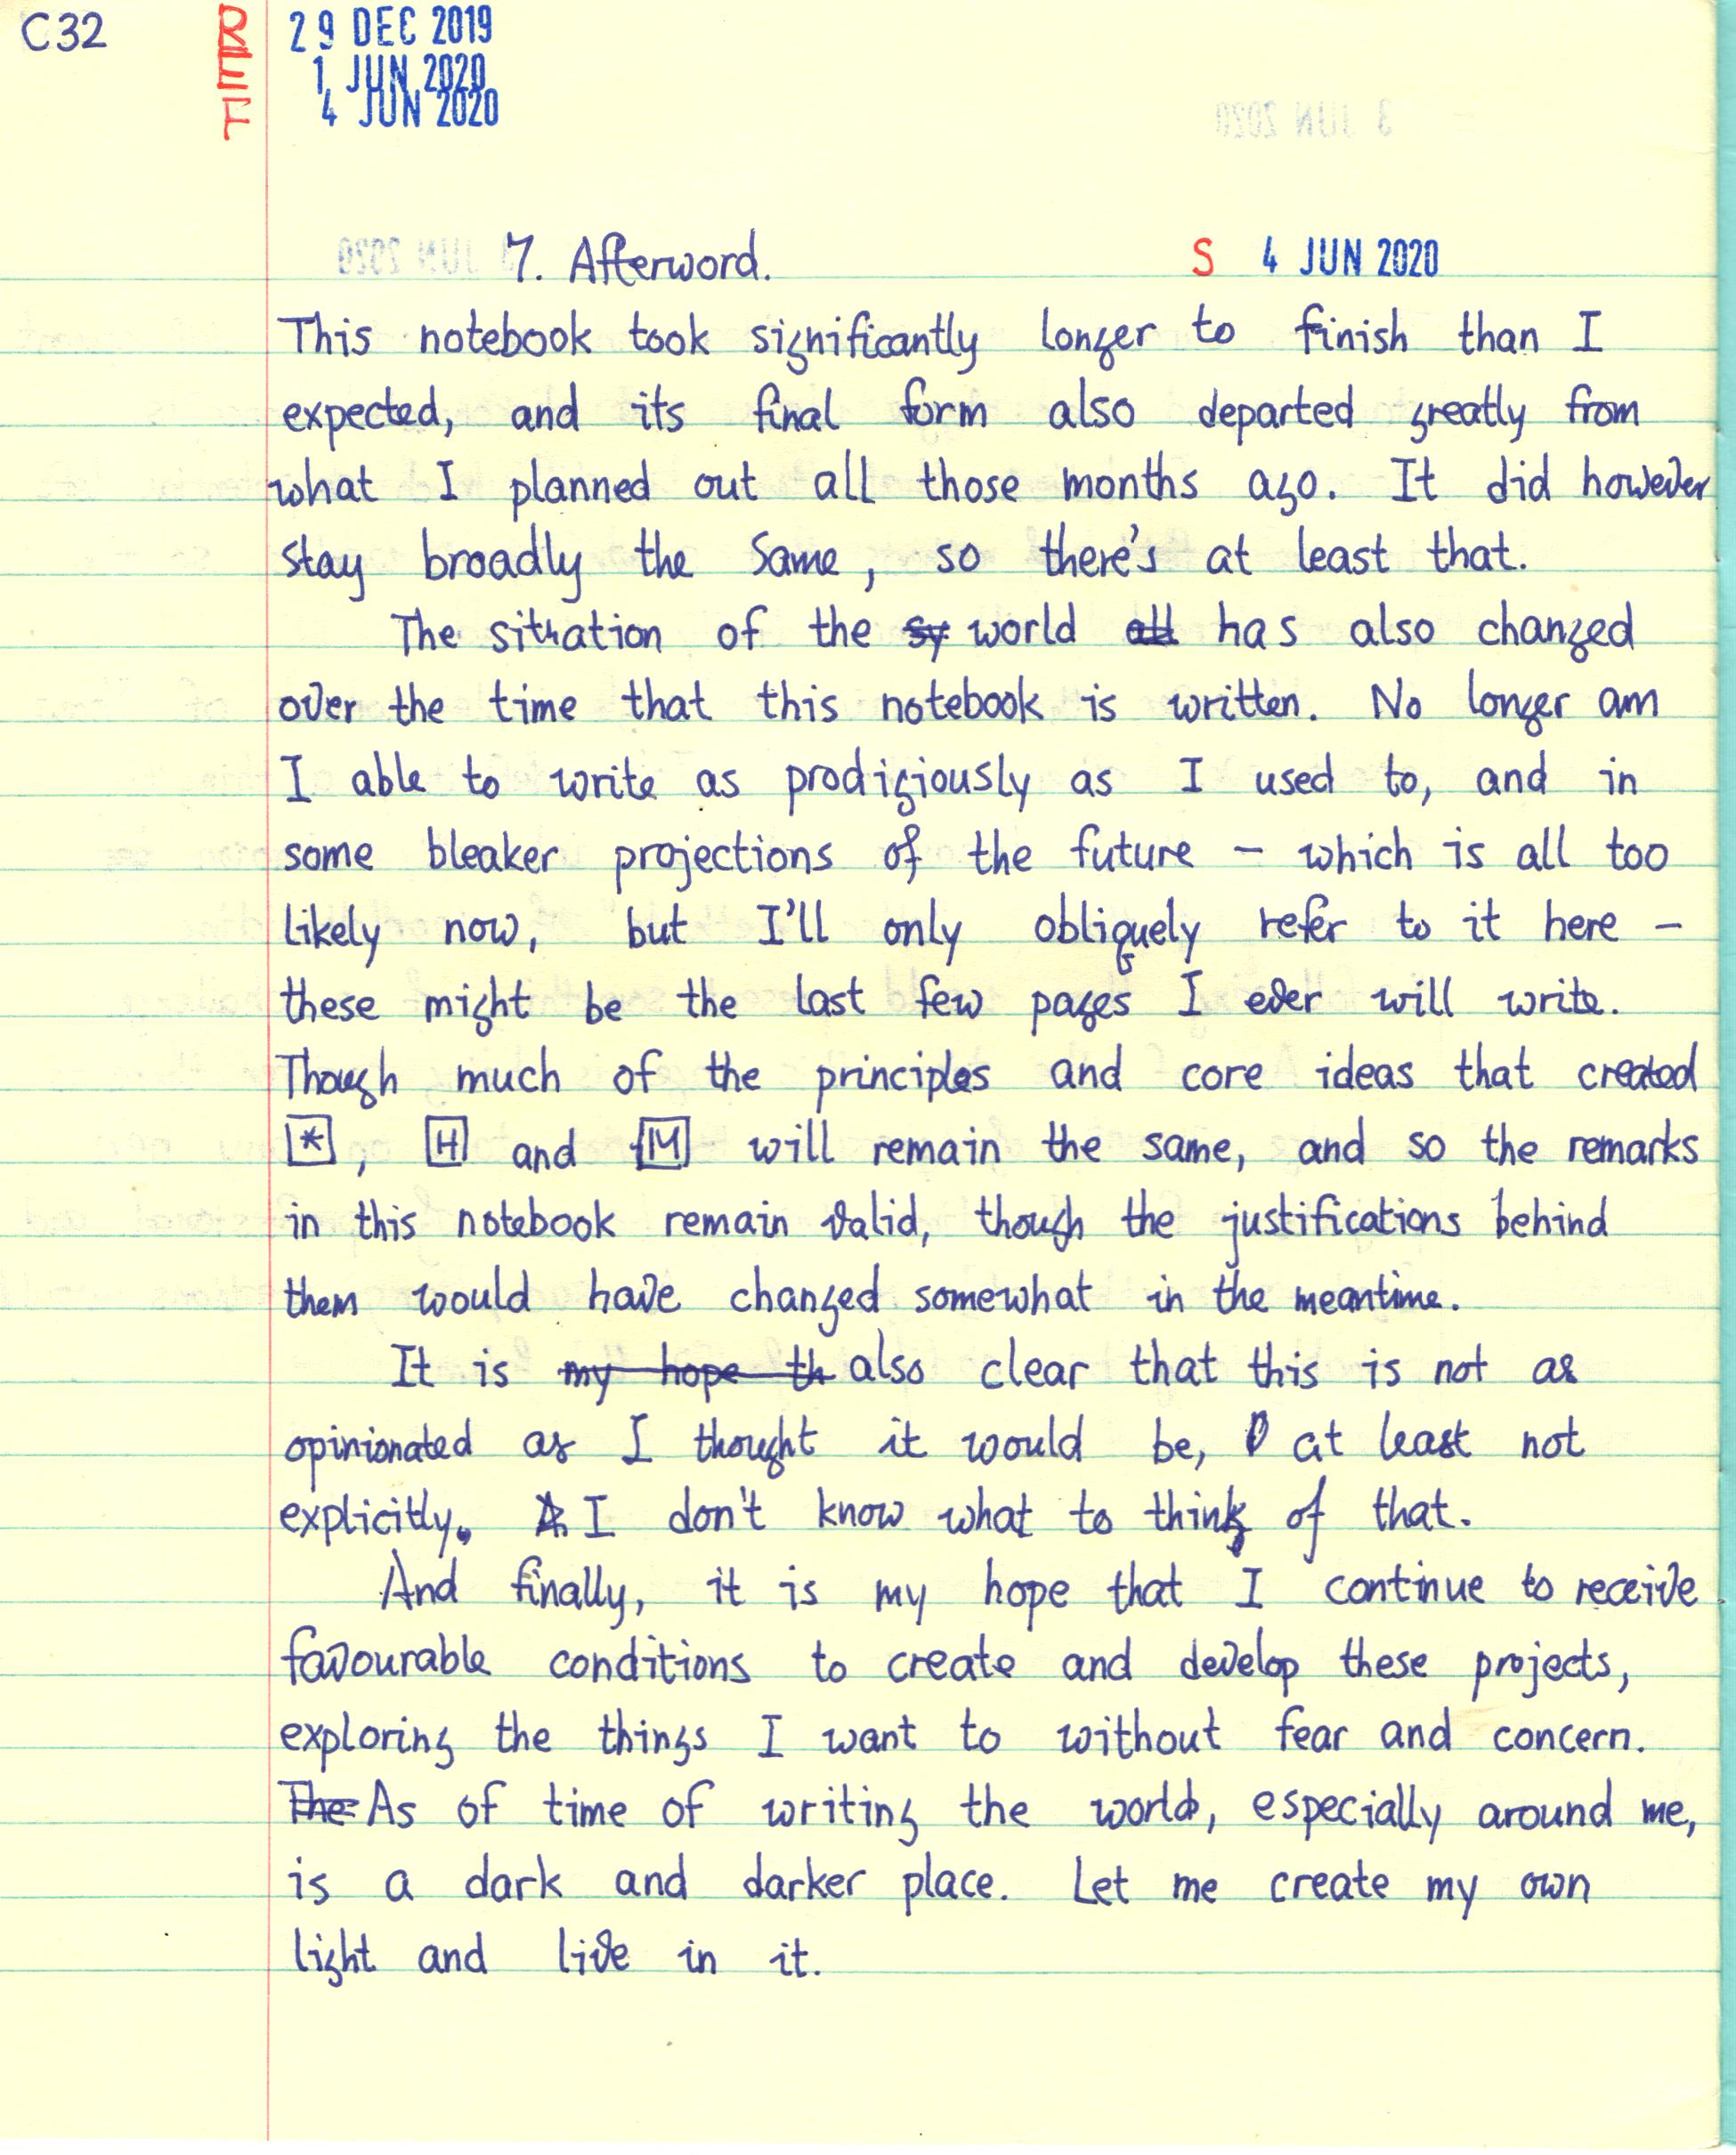 C32
REF
29 DEC 2019
1 JUN 2020
4 JUN 2020
3 JUN 2020
3 JUN 2020
7. Afterword.
S 4 JUN 2020
This notebook took significantly longer to finish than I
expected, and its final form also departed greatly from
what I planned out all those months ago. It did however
stay broadly the same, so there's at least that.
The situation of the sy world all has also changed
over the time that this notebook is written. No longer am
I able to write as prodigiously as I used to, and in
some bleaker projections of the future – which is all too
likely now, but I'll only obliquely refer to it here –
these might be the last few pages I ever will write.
Though much of the principles and core ideas that created
[*], [H] and [M] will remain the same, and so the remarks
in this notebook remain valid, though the justifications behind
them would have changed somewhat in the meantime.
It is my hope th also clear that this is not as
opinionated as I thought it would be, at least not
explicitly. I don't know what to think of that.
And finally, it is my hope that I continue to receive
favourable conditions to create and develop these projects,
exploring the things I want to without fear and concern.
The As of time of writing the world, especially around me,
is a dark and darker place. Let me create my own
light and live in it.